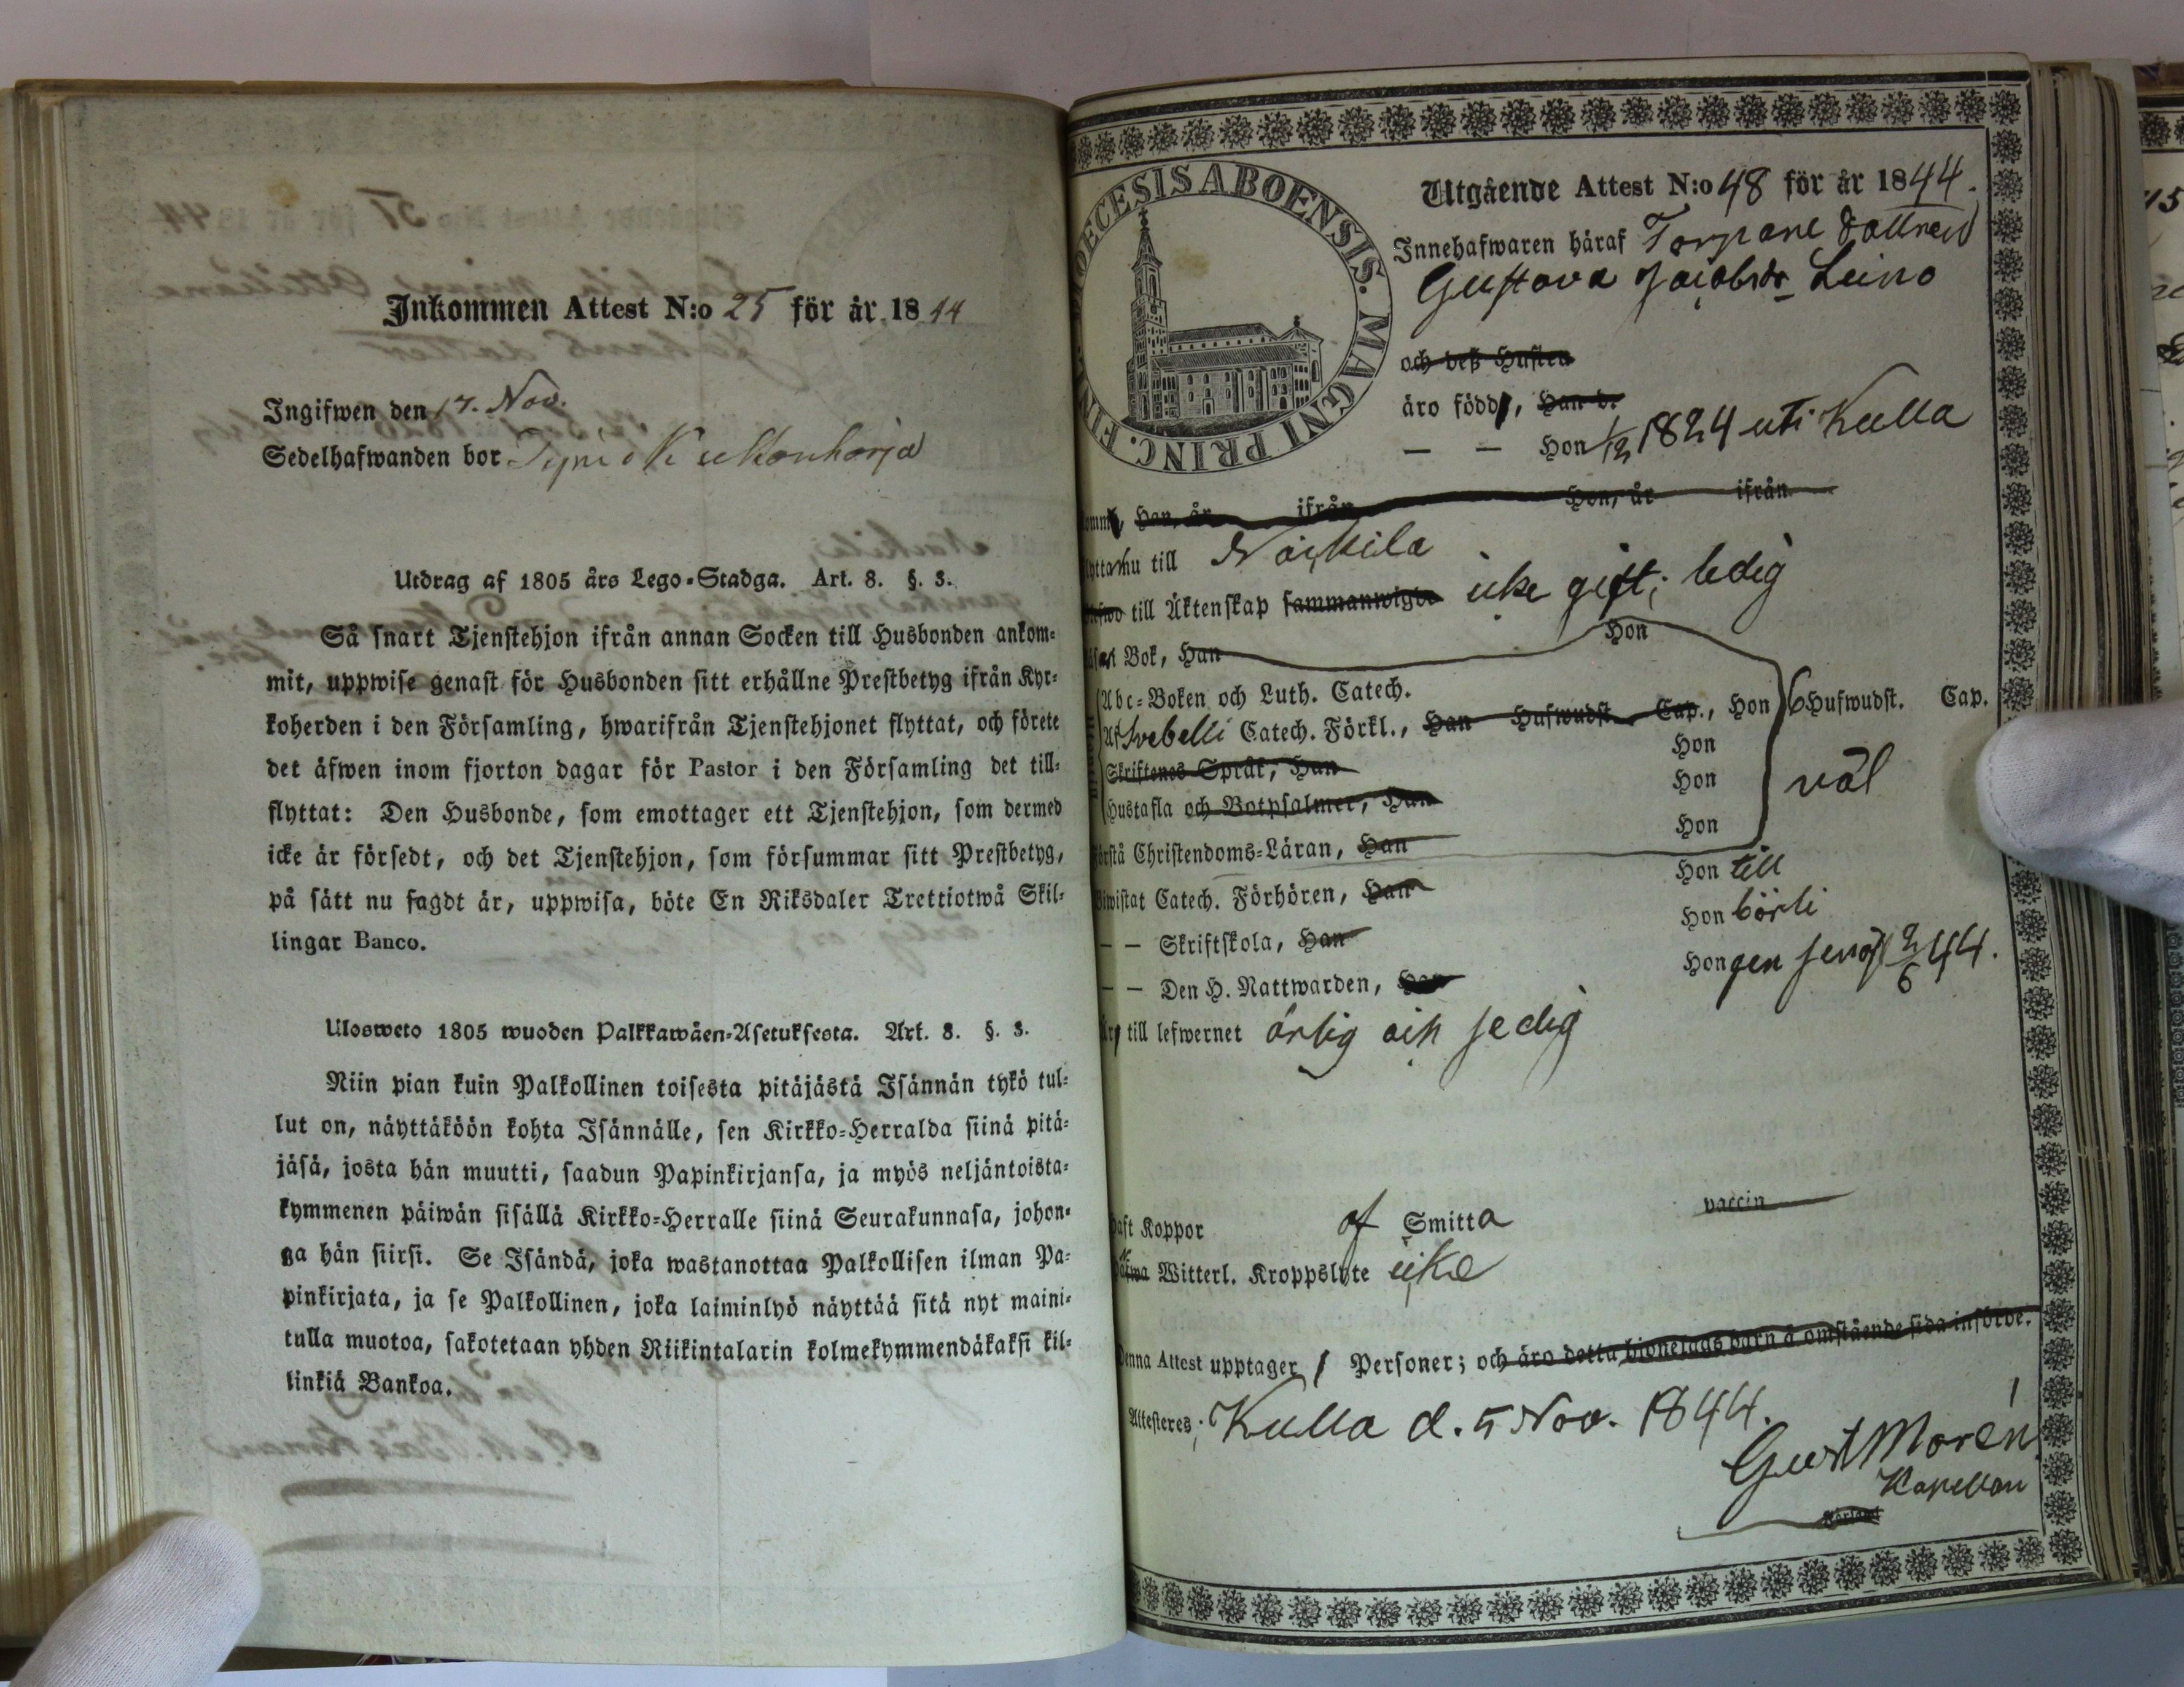 Inkommen Attest N:o 25 för år 1844
Ingifwen den 17. Nov.
Sedelhafwanden bor
Utdrag af 1805 års Lego-Stadga. Art. 8. §. 3.
Så snart Tjenstehjon ifrån annan Socken till Husbonden ankom-
mit, uppwise genast för Husbonden sitt erhållne Prestbetyg ifrån Kyr-
koherden i den Församling, hwarifrån Tjenstehjonet flyttat, och förete
det äfwen inom fjorton dagar för Pastor i den Församling det till-
flyttat: Den Husbonde, som emottager ett Tjenstehjon, som dermed
icke är försedt, och det Tjenstehjon, som försummar sitt Prestbetyg,
på sätt nu sagdt är, uppwisa, böte En Riksdaler Trettiotwå Skil-
lingar Banco.
Ulosweto 1805 wuoden Palkkawäen-Asetuksesta. Art. 8. §. 3.
Niin pian kuin Palkollinen toisesta pitäjästä Isännän tykö tul-
lut on, näyttäköön kohta Isännälle, sen Kirkko-Herralda siinä pitä-
jäsä, josta hän muutti, saadun Papinkirjansa, ja myös neljäntoista-
kymmenen päiwän sisällä Kirkko-Herralle siinä Seurakunnasa, johon-
ga hän siirsi. Se Isändä, joka wastanottaa Palkollisen ilman Pa-
pinkirjata, ja se Palkollinen, joka laiminlyö näyttää sitä nyt maini-
tulla muotoa, sakotetaan yhden Riikintalarin kolmekymmendäkaksi kil-
linkiä Bankoa.
DIOECESIS ABOENSIS. MAGNI PRINC. FINL.
Utgående Attest N:o 48 för år 1844.
Innehafwaren häraf Torpare dottren
Gustava Jacobsdr Leino
och deß Hustru
äro född, Han d.
— — Hon 1/12 1824 uti Kulla
Han, år ifrån Hon, år ifrån
nu till Nackila
till Äktenskap sammanwigde icke gift; ledig
Bok, Han Hon
Abc-Boken och Luth. Catech.
Af Svebelii Catech. Förkl., Han Hufwudst. Cap., Hon 6 Hufwudst. Cap.
Skriftenes Språk, Han Hon
Hustafla och Botpsalmer, Han Hon väl
Förstå Christendoms-Läran, Han Hon
Biwistat Catech. Förhören, Han Hon till
— — Skriftskola, Han Hon börli
— — Den H. Nattwarden, Han Hon gen senast 2/6 44.
till lefwernet ärlig och sedig
haft Koppor af Smitta vaccin
Witterl. Kroppslyte icke
Denna Attest upptager 1 Personer; och äro detta hjonelags barn å omstående sida införde.
Attesteres; Kulla d. 5 Nov. 1844.
Gust Morén
Kapellan